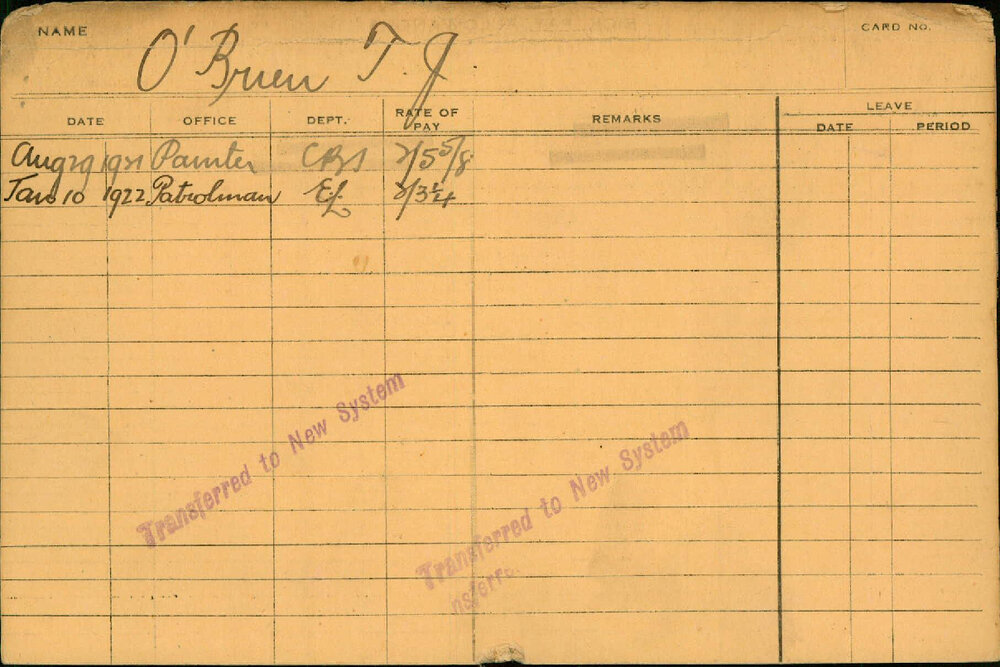 NAME
O'Brien T J
CARD NO.
DATE OFFICE DEPT. RATE OF PAY REMARKS LEAVE
DATE PERIOD
Aug 29 1921 Painter CBS 2/5 5/8
Jan 10 1922 Patrolman E.L. 2/3 1/4
Transferred to New System
Transferred to New System
nsferre